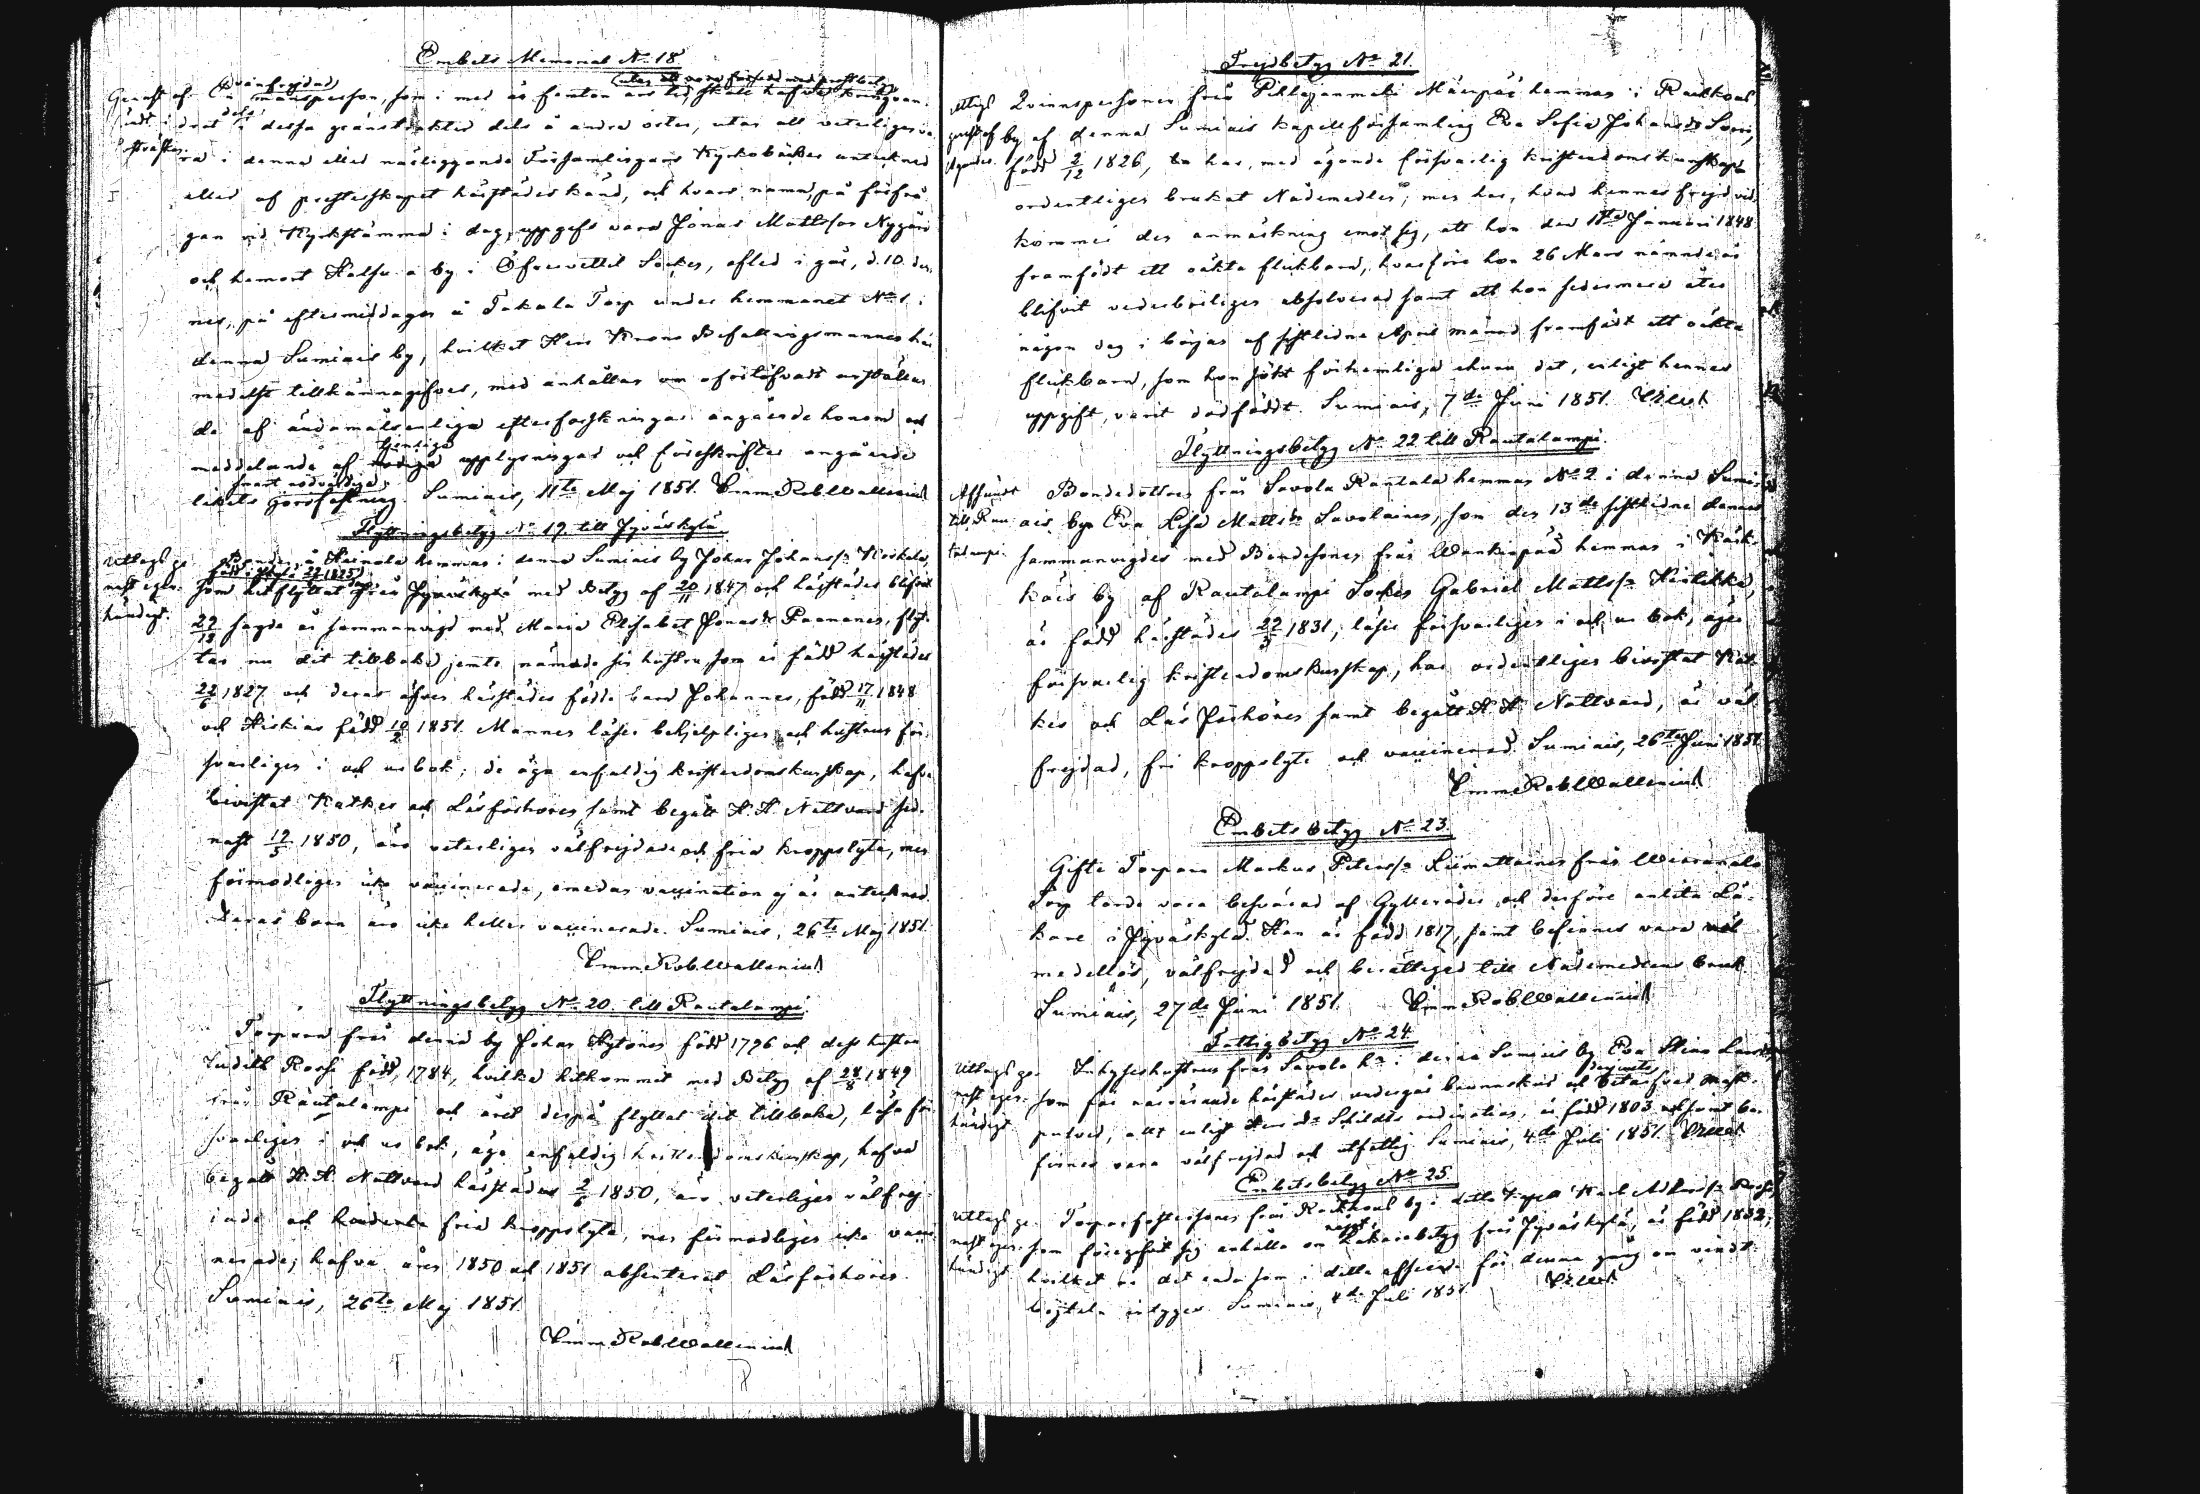 Embets Memorial No 18.
Genast af-
sändt i
En vanfrejdad mansperson, som i mer än femton års tid skall hafva kringvan-
(utan att vara försedd med prestbetyg)
drat dels i dessa gränstrakter dels å andra orter, utan att veterligen va-
ra i denna eller närliggande Församlingars Kyrkoböcker antecknad
eller af presterskapet härstädes känd, och hvars namn, på förfrå-
gan vid Kyrkstämma i dag, uppgefs vara Jonas Mattsson Nygård
och hemort by i Öfvervettil Socken, afled i går, d. 10 den-
nes, på eftermiddagen å Takala Torp under hemmanet No 1 i
denna Sumiais by, hvilket Herr Krono Befallningsmannen här
medelst tillkännagifves, med anhållan om ofördröjligt anställan-
de af ändamålsenliga efterforskningar angående honom och
meddelande af benägna upplysningar och föreskrifter angående
likets jordfästning. Sumiais, 11te Maj 1851. Emm. Rob. Wallenius
Flyttningsbetyg No 19. till Jyväskylä.
Uttagit ge-
nast egen-
händigt.
Bonden å Heinola hemman i denna Sumiais by Johan Johanss:n Koskela,
som hitflyttat från Jyväskylä med Betyg af 20/11 1847 och härstädes blifvit
29/12 sagde år sammanvigd med Maria Elisabet Jonasdr Paananen, flyt-
tar nu dit tillbaka jemte nämnde sin hustru som är född härstädes
22/6 1827 och deras äfven härstädes födda barn Johannes, född 17/11 1848
och Hiskias född 10/2 1851. Mannen läser behjelpligen och hustrun för-
svarligen i och ur bok; de äga enfaldig kristendomskunskap, hafva
bivistat Katkes och Läsförhören samt begått H. H. Nattvard sed-
nast 12/5 1850, äro veterligen välfrejdade och fria kroppslyte, men
förmodligen icke vaccinerade, emedan vaccination ej är antecknad.
Deras barn äro icke heller vaccinerade. Sumiais, 26te Maj 1851.
Emm. Rob. Wallenius
Flyttningsbetyg No 20. till Rautalampi.
Torparen från denna by Johan Hytönen född 1796 och dess hustru
Judith Rossi född 1784, hvilka hitkommit med Betyg af 28/8 1849
från Rautalampi och året derpå flyttat dit tillbaka, läsa för-
svarligen i och ur bok, äga enfaldig kristendomskunskap, hafva
begått H. H. Nattvard härstädes 2/6 1850, äro veterligen välfrej-
dade och fria kroppslyte, men förmodligen icke vacci-
nerade; hafva åren 1850 och 1851 absenterat Läsförhören.
Sumiais, 26te Maj 1851.
Emm. Rob. Wallenius
Frejdbetyg No 21.
Qvinnspersonen från Pihlajanmäki Mäenpää hemman i Rautkoul
by af denna Sumiais Kapellförsamling Eva Sofia Johansdr
född 2/12 1826, har, med ägande försvarlig kristendomskunskap
ordentligen brukat Nådemedlen; men har, hvad hennes frejd vid-
kommer den anmärkning emot sig, att hon den Januari 1848
framfödt ett oäkta flickbarn, hvarföre hon 26 Mars nämnde år
blifvit vederbörligen absolverad samt att hon sedermera åter
någon dag i början af sistlidne April månad framfödt ett oäkta
flickbarn, som hon sökt förhemliga ehuru det, enligt hennes
uppgift, varit dödfödt. Sumiais, 7de Juni 1851.
Flyttningsbetyg No 22 till Rautalampi.
Afsändt
till Rau-
talampi.
Bondedottren från Savola Rantala hemman No 2 i denna Sumi-
ais by Eva Lisa Mattsdr Savolainen, som den 13de sistlidne dennes
sammanvigdes med Bondesonen från hemman i
by af Rautalampi Socken Gabriel Mattss:n
är född härstädes 22/3 1831; läser försvarligen i och ur bok, äger
försvarlig kristendomskunskap, har ordentligen bivistat Kat-
kes och Läs Förhören samt begått H. H. Nattvard, är väl-
frejdad, fri kroppslyte och vaccinerad. Sumiais, 26te Juni 1851.
Emm. Rob. Wallenius
Embetsbetyg No 23.
Gifte Torparen Markus Peterss:n Liimattainen från
Torp torde vara besvärad af Gyllenåder och derföre anlita Lä-
kare i Jyväskylä. Han är född 1817, samt befinnes vara
medellös, välfrejdad och berättigad till Nådemedlens bruk.
Sumiais, 27de Juni 1851. Emm. Rob. Wallenius
Fattigbetyg No 24.
Uttagit ge-
nast egen-
händigt
Inhyseshustrun från Savola hn i denna Sumiais by Eva Stina
som för närvarande härstädes undergår och
allt enligt Herr Dr Schildts ordination, är född 1803 och samt be-
finnes vara välfrejdad och utfattig. Sumiais, 4de Juli 1851.
Embetsbetyg No 25.
Uttagit ge-
nast egen-
händigt
från Rautkoul by i detta Kapell Karl
som föregifvit sig anhålla om Läkarebetyg från Jyväskylä, är född 1832;
hvilket är det enda som i detta afseende för denna gång
intygas. Sumiais, 4de Juli 1851.